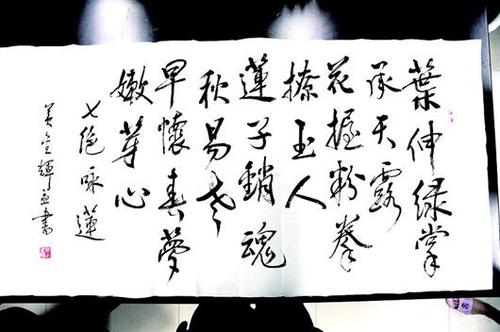 葉伸绿掌
承天露
花握粉拳
撩玉人
蓮子銷魂
秋易老
早懷春夢
嫩芽心
七绝咏蓮
金輝並書